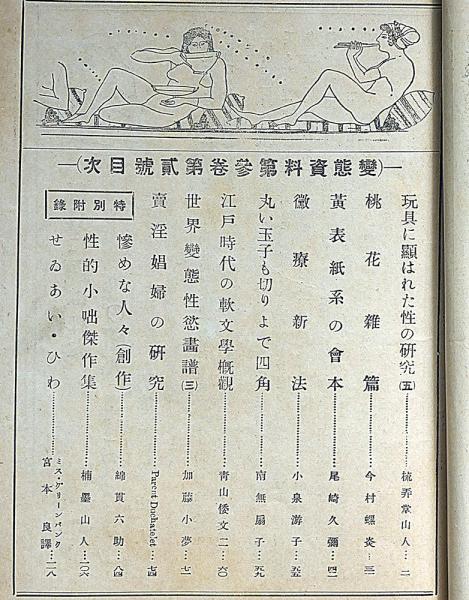 —(變態資料第參卷第貳號目次)—
玩具に顯はれた性の研究(五)………梳弄堂山人…二
桃花雜篇………今村螺炎…三一
黃表紙系の會本………尾崎久彌…四二
黴療新法………小泉游子…五五
丸い玉子も切りよで四角………南無扇子…五九
江戸時代の軟文學概觀………靑山倭文二…六〇
世界變態性慾畫譜(三)………加藤小夢…七一
賣淫娼婦の硏究………Parent Duchatelet…七四
慘めな人々(創作)………綿貫六助…八四
特別附錄
性的小咄傑作集………楠墨山人…一〇六
せゐあい・ひわ………ミス・グリーンバンク 宮本良譯…一二八